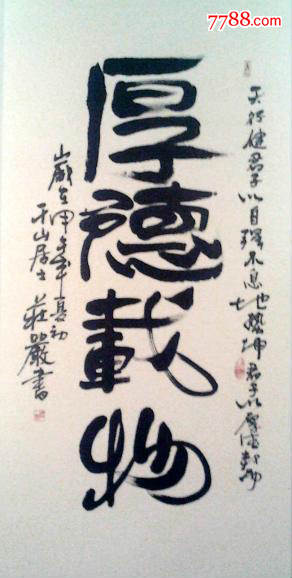 7788.com
天行健君子以自強不息地勢坤君子以厚德載物
厚德載物
歲在甲午年夏初
千山居士莊嚴書